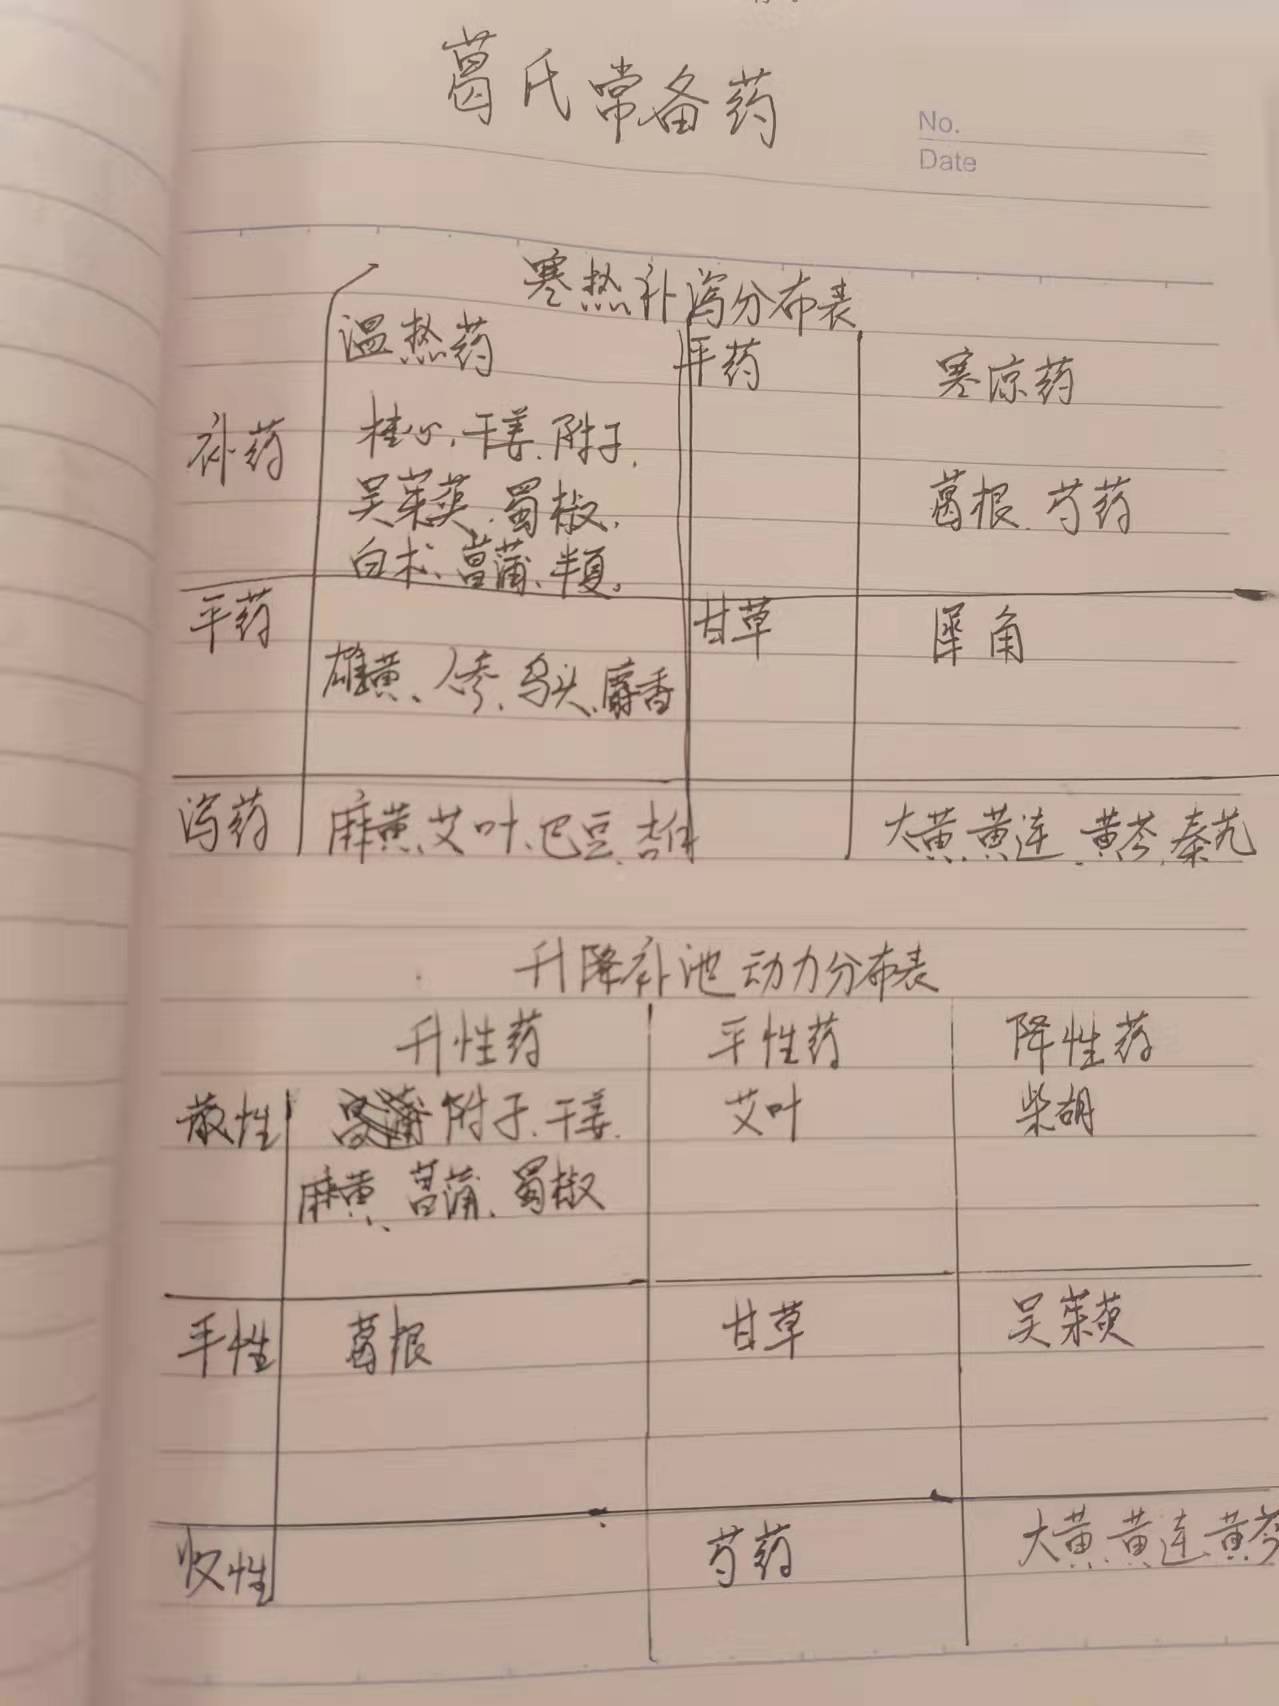 葛氏常备药
No.
Date
寒热补泻分布表
温热药 平药 寒凉药
补药 桂心、干姜、附子、
吴茱萸、蜀椒、 葛根、芍药
白术、菖蒲、半夏。
平药 甘草 犀角
雄黄、人参、乌头、麝香
泻药 麻黄、艾叶、巴豆、 大黄、黄连、黄芩、秦艽
升降补池动力分布表
升性药 平性药 降性药
散性 附子、干姜、 艾叶 柴胡
麻黄、菖蒲、蜀椒
平性 葛根 甘草 吴茱萸
收性 芍药 大黄、黄连、黄芩